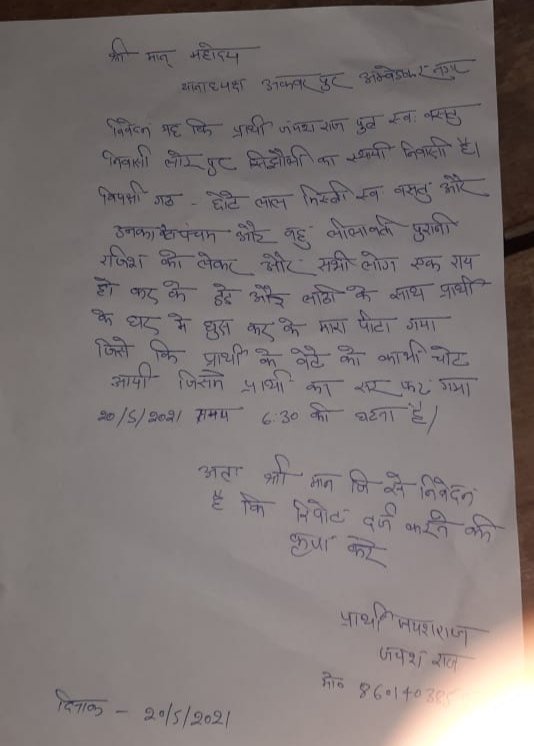 श्री मान् महोदय
थानाध्यक्ष अकबर पुर अम्बेडकर नगर
निवेदन यह कि प्रार्थी जयश राज पुत्र स्व॰
निवासी लोर पुर का स्थायी निवासी है।
विपक्षी गठ - छोटे लाल मिस्त्री स्व और
उनका बेटा पंचम और बहु लीलावती पुरानी
रंजिश को लेकर और सभी लोग एक राय
हो कर के डंडे और लाठी के साथ प्रार्थी
के घर मे घुस कर के मारा पीटा गया
जिसे कि प्रार्थी के बेटे को काफी चोट
आयी जिसमे प्रार्थी का सर फट गया
20/5/2021 समय 6:30 की घटना है।
अतः श्री मान जि से निवेदन
है कि रिपोट दर्ज करने की
कृपा करे
प्रार्थी जयशराज
जयश राज
मो॰ 860140385
दिनाक - 20/5/2021